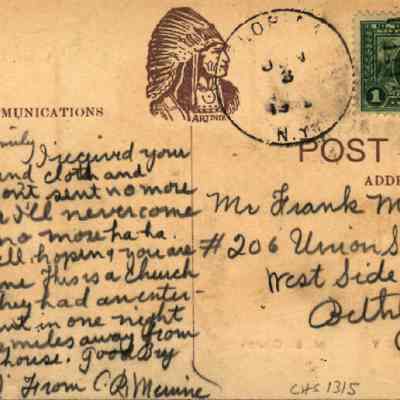 MUNICATIONS
ART INDI
JUN
3
N.Y.
1
POST
ADD
mily
I received your
and cloth and
ont sent no more
I'll never come
no more ha-ha.
ell hoping you are
me This is a church
they had an enter-
ent in one night
miles away from
house. Good By
From C.B.
Mr Frank M
# 206 Union S
West Side
Bethl
CHS 1315